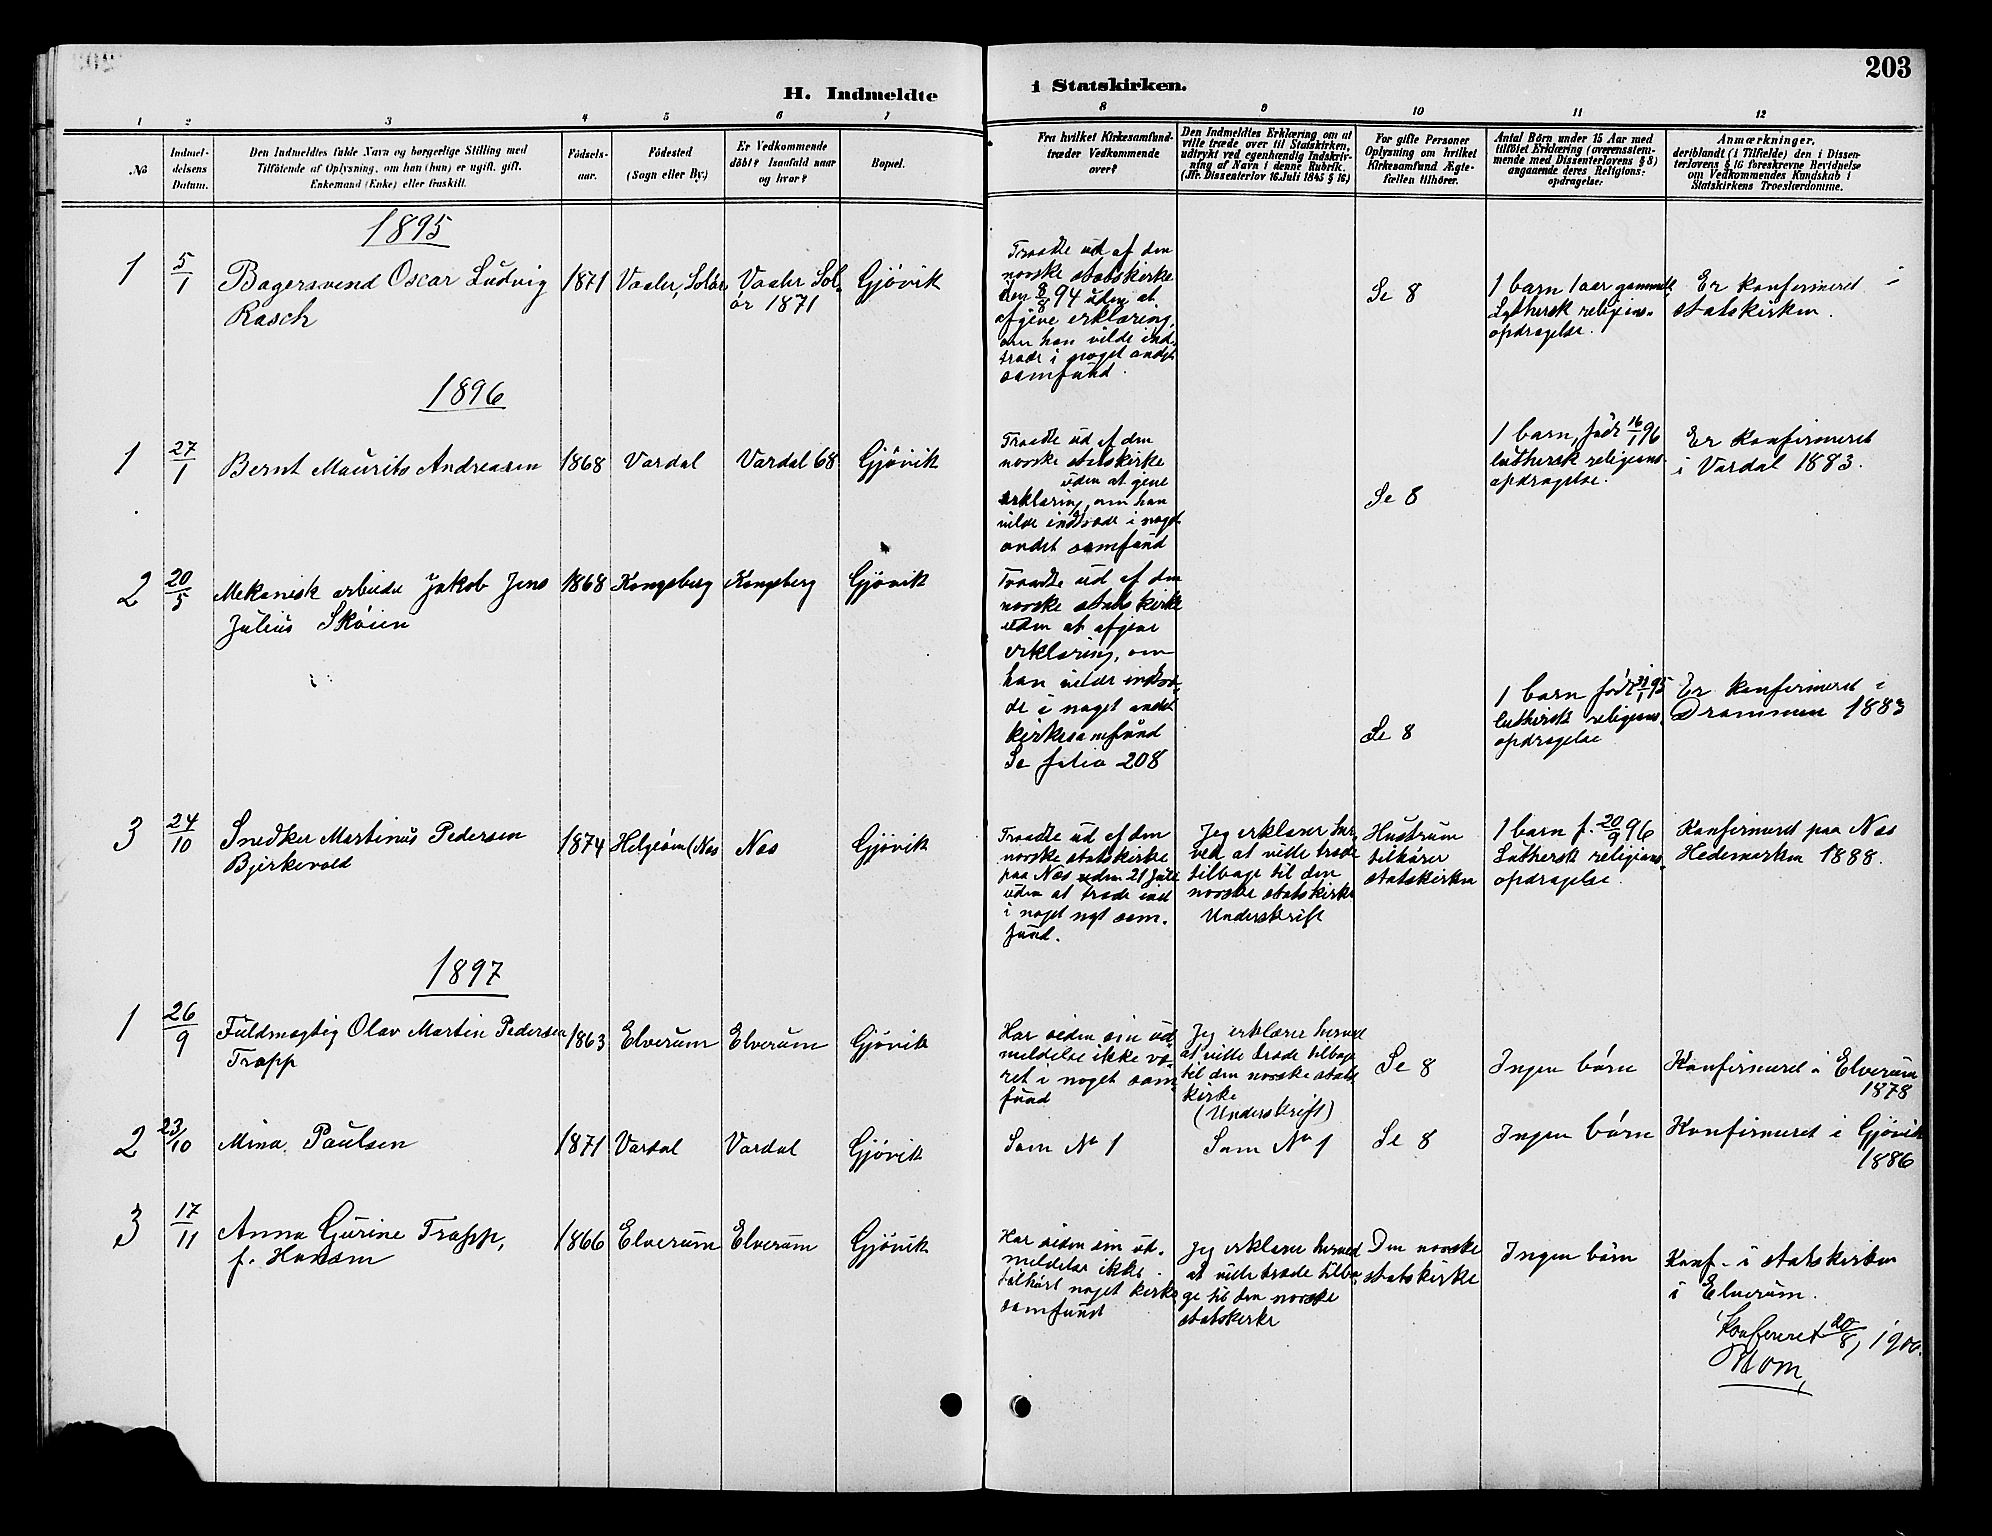 203
H. Indmeldte i Statskirken.
1 2 3 4 5 6 7 8 9 10 11 12
No
Indmel-
delsens
Datum.
Den Indmeldtes fulde Navn og borgerlige Stilling med
Tilföiende af Oplysning, om han (hun) er ugift, gift,
Enkemand (Enke) eller fraskilt.
Födsels-
aar.
Födested
(Sogn eller By.)
Er Vedkommende
döbt? Isaafald naar
og hvor?
Bopæl.
Fra hvilket Kirkesamfund-
træder Vedkommende
over?
Den Indmeldtes Erklæring om at
ville træde over til Statskirken,
udtrykt ved egenhændig Indskriv-
ning af Navn i denne Rubrik.
(Jfr. Dissenterlov 16. Juli 1845 § 16)
For gifte Personer
Oplysning om hvilket
Kirkesamfund Ægte-
fællen tilhörer.
Antal Börn under 15 Aar med
tilföiet Erklæring (overensstem-
mende med Dissenterlovens § 8)
angaaende deres Religions-
opdragelse.
Anmærkninger,
deriblandt (i Tilfælde) den i Dissen-
terlovens § 16 foreskrevne Bevidnelse
om Vedkommendes Kundskab i
Statskirkens Troeslærdomme.
1895
1
5/1
Bagersvend Oscar Ludvig
Rasch
1871
Vaaler, Solör
Vaaler Sol-
ör 1871
Gjøvik
Traadte ud af den
norske statskirke
den 8/8 94 uden at
afgive erklæring,
om han vilde ind-
træde i noget andet
samfund.
Se 8
1 barn 1 aar gammelt
Luthersk religions-
opdragelse.
Er konfirmeret i
statskirken.
1896
1
27/1
Bernt Maurits Andreasen
1868
Vardal
Vardal 68
Gjøvik
Traadte ud af den
norske statskirke
uden at give
erklæring, om han
vilde indtræde i noget
andet samfund
Se 8
1 barn, født 16/1 96
luthersk religions-
opdragelse.
Er konfirmeret
i Vardal 1883.
2
20/5
Mekanisk arbeider Jakob Jens
Julius Skøien
1868
Kongsberg
Kongsberg
Gjøvik
Traadte ud af den
norske statskirke
uden at afgive
erklæring, om
han vilde indtræ-
de i noget andet
kirkesamfund
Se folio 208
Se 8
1 barn født 95
luthersk religions-
opdragelse
Er konfirmeret i
Drammen 1883
3
24/10
Snedker Martinus Pedersen
Bjerkevold
1874
Helgøen (Næs
Næs
Gjøvik
Traadte ud af den
norske statskirke
paa Næs den 21 Juli
uden at træde ind
i noget nyt sam-
fund.
Jeg erklærer her-
ved at ville træde
tilbage til den
norske statskirke
Underskrift
Hustruen
tilhører
statskirken
1 barn f. 20/9 96
Luthersk religions-
opdragelse.
Konfirmeret paa Næs
Hedemarken 1888.
1897
1
26/9
Fuldmægtig Olav Martin Pedersen
Trapp
1863
Elverum
Elverum
Gjøvik
Har siden sin ud-
meldelse ikke væ-
ret i noget sam-
fund
Jeg erklærer herved
at ville træde tilbage
til den norske stats
kirke
(Underskrift)
Se 8
Ingen børn
Konfirmeret i Elverum
1878
2
23/10
Mina Paulsen
1871
Vardal
Vardal
Gjøvik
Som No 1
Som No 1
Se 8
Ingen børn
Konfirmeret i Gjøvik
1886
3
17/11
Anna Gurine Trapp,
f. Hansen
1866
Elverum
Elverum
Gjøvik
Har siden sin ud-
meldelse ikke
tilhørt noget kirke
samfund
Jeg erklærer herved
at ville træde tilba-
ge til den norske
statskirke
Den norske
statskirke
Ingen børn
Konf. i statskirken
i Elverum.
Konfereret 20/8, 1900.